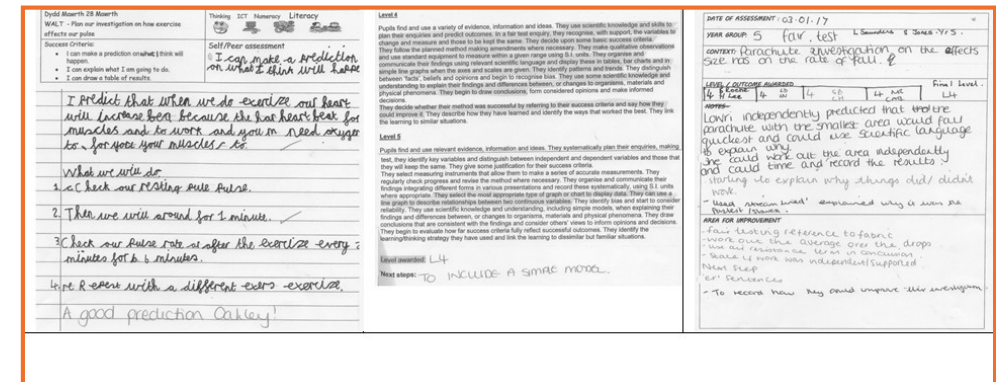 Dydd Mawrth 28 Mawrth
WALT - Plan our investigation on how exercise
effects our pulse
Success Criteria:
• I can make a prediction on what I think will
happen.
• I can explain what I am going to do.
• I can draw a table of results.
Thinking ICT Numeracy Literacy
Self/Peer assessment
I can make a prediction
on what I think will happe
I Predict that when we do exercize our heart
will increase because the heart beat for
muscles and to work and you need
to for your muscles to.
What we will do
1. Check our resting pulse.
2. Then we will around for 1 minute.
3. Check our Pulse rate after the exercize every 2
minutes for 6 minutes.
4. Repent with a different exercize.
A good prediction Oakley!
Level 4
Pupils find and use a variety of evidence, information and ideas. They use scientific knowledge and skills to
plan their enquiries and predict outcomes. In a fair test enquiry, they recognise, with support, the variables to
change and measure and those to be kept the same. They decide upon some basic success criteria.
They follow the planned method making amendments where necessary. They make qualitative observations
and use standard equipment to measure within a given range using S.I. units. They organise and
communicate their findings using relevant scientific language and display these in tables, bar charts and in
simple line graphs when the axes and scales are given. They identify patterns and trends. They distinguish
between 'facts', beliefs and opinions and begin to recognise bias. They use some scientific knowledge and
understanding to explain their findings and differences between, or changes to organisms, materials and
physical phenomena. They begin to draw conclusions, form considered opinions and make informed
decisions.
They decide whether their method was successful by referring to their success criteria and say how they
could improve it. They describe how they have learned and identify the ways that worked the best. They link
the learning to similar situations.
Level 5
Pupils find and use relevant evidence, information and ideas. They systematically plan their enquiries, making
test, they identify key variables and distinguish between independent and dependent variables and those that
they will keep the same. They give some justification for their success criteria.
They select measuring instruments that allow them to make a series of accurate measurements. They
regularly check progress and revise the method where necessary. They organise and communicate their
findings integrating different forms in various presentations and record these systematically, using S.I. units
where appropriate. They select the most appropriate type of graph or chart to display data. They can use a
line graph to describe relationships between two continuous variables. They identify bias and start to consider
reliability. They use scientific knowledge and understanding, including simple models, when explaining their
findings and differences between, or changes to organisms, materials and physical phenomena. They draw
conclusions that are consistent with the findings and consider others' views to inform opinions and decisions.
They begin to evaluate how far success criteria fully reflect successful outcomes. They identify the
learning/thinking strategy they have used and link the learning to dissimilar but familiar situations.
Level awarded: L4
Next steps: TO INCLUDE A SIMPLE MODEL.
DATE OF ASSESSMENT: 03-01-17
YEAR GROUP: 5 fair test L Saunders S Jones - Yr 5.
CONTEXT: Parachute investigation on the effects
size has on the rate of fall.
LEVEL / OUTCOME AWARDED Final Level.
4 H Lee 4 4 4 L4
NOTES
Lowri independently predicted that the
parachute with the smallest area would fall
quickest and could use scientific language
to explain why.
She could work out the area independently
and could time and record the results.
- starting to explain why things did/didn't
work.
explained why it was the
AREA FOR IMPROVEMENT
- fair testing reference to fabric
- work out the average over the drops
- use air resistance term in conclusion.
- State if work was independent/supported
Next Step
'er' sentences
- To record how they could improve their investigation.